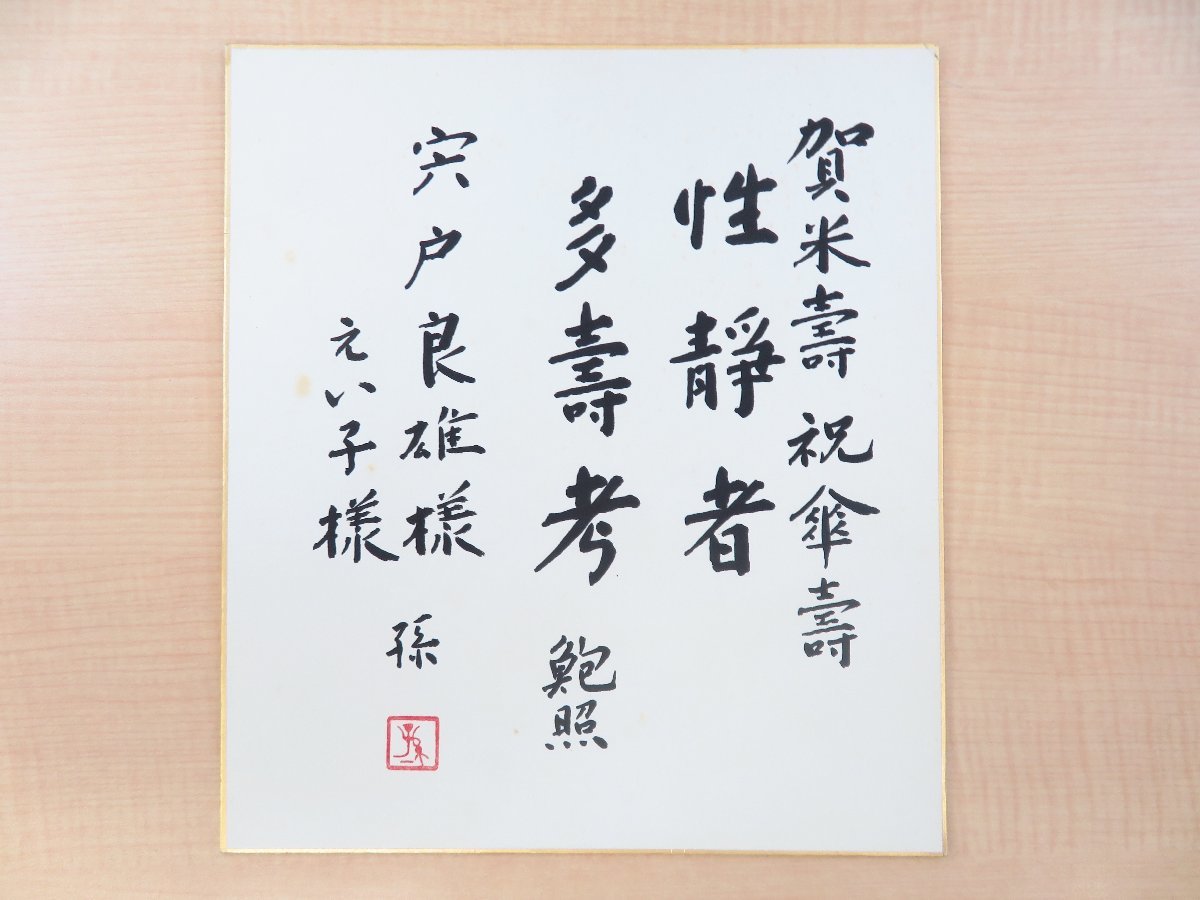 賀米壽 祝傘壽
性靜者
多壽考 鮑照
宍戸良雄様 孫
えい子様